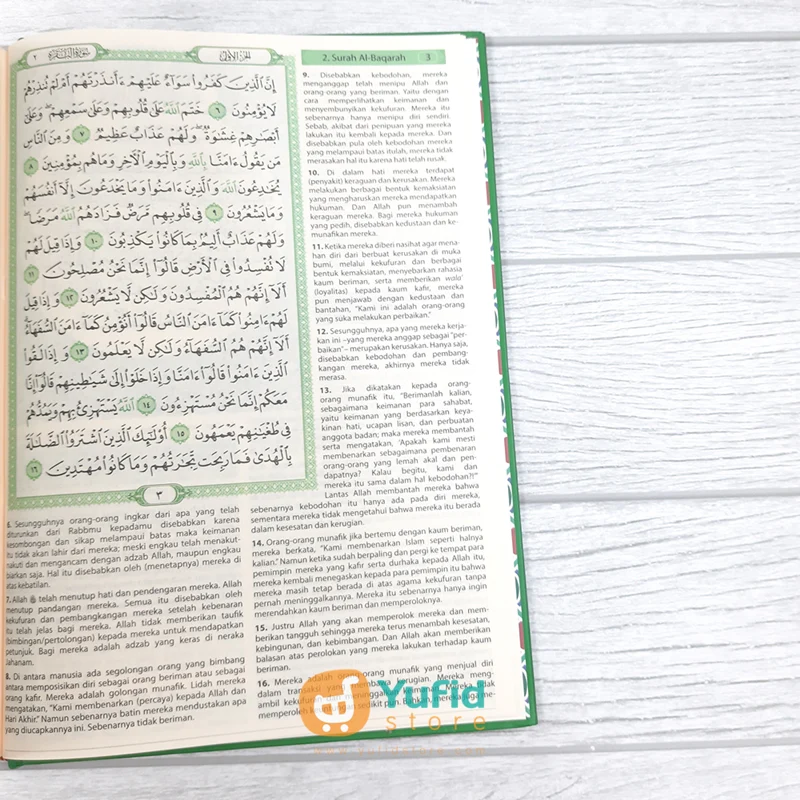 سورة البقرة ٢
الجزء الأول
إِنَّ الَّذِينَ كَفَرُوا سَوَاءٌ عَلَيْهِمْ ءَأَنذَرْتَهُمْ أَمْ لَمْ تُنذِرْهُمْ
لَا يُؤْمِنُونَ ٦ خَتَمَ اللَّهُ عَلَىٰ قُلُوبِهِمْ وَعَلَىٰ سَمْعِهِمْ ۖ وَعَلَىٰ
أَبْصَارِهِمْ غِشَاوَةٌ ۖ وَلَهُمْ عَذَابٌ عَظِيمٌ ٧ وَمِنَ النَّاسِ
مَن يَقُولُ ءَامَنَّا بِاللَّهِ وَبِالْيَوْمِ الْآخِرِ وَمَا هُم بِمُؤْمِنِينَ ٨
يُخَادِعُونَ اللَّهَ وَالَّذِينَ ءَامَنُوا وَمَا يَخْدَعُونَ إِلَّا أَنفُسَهُمْ
وَمَا يَشْعُرُونَ ٩ فِي قُلُوبِهِم مَّرَضٌ فَزَادَهُمُ اللَّهُ مَرَضًا ۖ
وَلَهُمْ عَذَابٌ أَلِيمٌ بِمَا كَانُوا يَكْذِبُونَ ١٠ وَإِذَا قِيلَ لَهُمْ
لَا تُفْسِدُوا فِي الْأَرْضِ قَالُوا إِنَّمَا نَحْنُ مُصْلِحُونَ ١١
أَلَا إِنَّهُمْ هُمُ الْمُفْسِدُونَ وَلَٰكِن لَّا يَشْعُرُونَ ١٢ وَإِذَا قِيلَ
لَهُمْ ءَامِنُوا كَمَا ءَامَنَ النَّاسُ قَالُوا أَنُؤْمِنُ كَمَا ءَامَنَ السُّفَهَاءُ ۗ
أَلَا إِنَّهُمْ هُمُ السُّفَهَاءُ وَلَٰكِن لَّا يَعْلَمُونَ ١٣ وَإِذَا لَقُوا
الَّذِينَ ءَامَنُوا قَالُوا ءَامَنَّا وَإِذَا خَلَوْا إِلَىٰ شَيَاطِينِهِمْ قَالُوا إِنَّا
مَعَكُمْ إِنَّمَا نَحْنُ مُسْتَهْزِءُونَ ١٤ اللَّهُ يَسْتَهْزِئُ بِهِمْ وَيَمُدُّهُمْ
فِي طُغْيَانِهِمْ يَعْمَهُونَ ١٥ أُولَٰئِكَ الَّذِينَ اشْتَرَوُا الضَّلَالَةَ
بِالْهُدَىٰ فَمَا رَبِحَت تِّجَارَتُهُمْ وَمَا كَانُوا مُهْتَدِينَ ١٦
٣
6. Sesungguhnya orang-orang ingkar dari apa yang telah
diturunkan dari Rabbmu kepadamu disebabkan karena
kesombongan dan sikap melampaui batas maka keimanan
itu tidak akan lahir dari mereka; meski engkau telah menakut-
nakuti dan mengancam dengan adzab Allah, maupun engkau
biarkan saja. Hal itu disebabkan oleh (menetapnya) mereka di
atas kebatilan.
7. Allah ﷻ telah menutup hati dan pendengaran mereka. Allah
menutup pandangan mereka. Semua itu disebabkan oleh
kekufuran dan pembangkangan mereka setelah kebenaran
itu telah jelas bagi mereka. Allah tidak memberikan taufik
(bimbingan/pertolongan) kepada mereka untuk mendapatkan
petunjuk. Bagi mereka adalah adzab yang keras di neraka
Jahanam.
8. Di antara manusia ada segolongan orang yang bimbang
antara memposisikan diri sebagai orang beriman atau sebagai
orang kafir. Mereka adalah golongan munafik. Lidah mereka
mengatakan, "Kami membenarkan (percaya) kepada Allah dan
Hari Akhir." Namun sebenarnya batin mereka mendustakan apa
yang diucapkannya ini. Sebenarnya tidak beriman.
2. Surah Al-Baqarah 3
9. Disebabkan kebodohan, mereka
menganggap telah menipu Allah dan
orang orang yang beriman. Yaitu dengan
cara memperlihatkan keimanan dan
menyembunyikan kekufuran. Mereka itu
sebenarnya hanya menipu diri sendiri.
Sebab, akibat dari penipuan yang mereka
lakukan itu kembali kepada mereka. Dan
disebabkan pula oleh kebodohan mereka
yang melampaui batas itulah, mereka tidak
merasakan hal itu karena hati telah rusak.
10. Di dalam hati mereka terdapat
(penyakit) keraguan dan kerusakan. Mereka
melakukan berbagai bentuk kemaksiatan
yang mengharuskan mereka mendapatkan
hukuman. Dan Allah pun menambah
keraguan mereka. Bagi mereka hukuman
yang pedih, disebabkan kedustaan dan ke-
munafikan mereka.
11. Ketika mereka diberi nasihat agar mena-
han diri dari berbuat kerusakan di muka
bumi, melalui kekufuran dan berbagai
bentuk kemaksiatan, menyebarkan rahasia
kaum beriman, serta memberikan wala'
(loyalitas) kepada kaum kafir, mereka
pun menjawab dengan kedustaan dan
bantahan, "Kami ini adalah orang-orang
yang suka melakukan perbaikan."
12. Sesungguhnya, apa yang mereka kerja-
kan ini –yang mereka anggap sebagai "per-
baikan"– merupakan kerusakan. Hanya saja,
disebabkan kebodohan dan pembang-
kangan mereka, akhirnya mereka tidak
merasa.
13. Jika dikatakan kepada orang-
orang munafik itu, "Berimanlah kalian,
sebagaimana keimanan para sahabat,
yaitu keimanan yang berdasarkan keya-
kinan hati, ucapan lisan, dan perbuatan
anggota badan; maka mereka membantah
serta mengatakan, 'Apakah kami mesti
membenarkan sebagaimana pembenaran
orang-orang yang lemah akal dan pen-
dapatnya? Kalau begitu, kami dan
mereka itu sama dalam hal kebodohan?!"
Lantas Allah membantah mereka bahwa
sebenarnya kebodohan itu hanya ada pada diri mereka,
sementara mereka tidak mengetahui bahwa mereka itu berada
dalam kesesatan dan kerugian.
14. Orang-orang munafik jika bertemu dengan kaum beriman,
mereka berkata, "Kami membenarkan Islam seperti halnya
kalian." Namun ketika sudah berpaling dan pergi ke tempat para
pemimpin mereka yang kafir serta durhaka kepada Allah itu,
mereka kembali menegaskan kepada para pemimpin itu bahwa
mereka masih tetap berada di atas agama kekufuran tanpa
pernah meninggalkannya. Mereka itu sebenarnya hanya ingin
merendahkan kaum beriman dan memperoloknya.
15. Justru Allah yang akan memperolok mereka dan mem-
berikan tangguh sehingga mereka terus menambah kesesatan,
kebingungan, dan kebimbangan. Dan Allah akan memberikan
balasan atas perolokan yang mereka lakukan terhadap kaum
beriman.
16. Mereka adalah orang-orang munafik yang menjual diri
dalam transaksi yang kerugian. Mereka meng-
ambil kekufuran dan meninggalkan Mereka
memperoleh keuntungan sedikit pun. Bahkan, mereka
Yufid
store